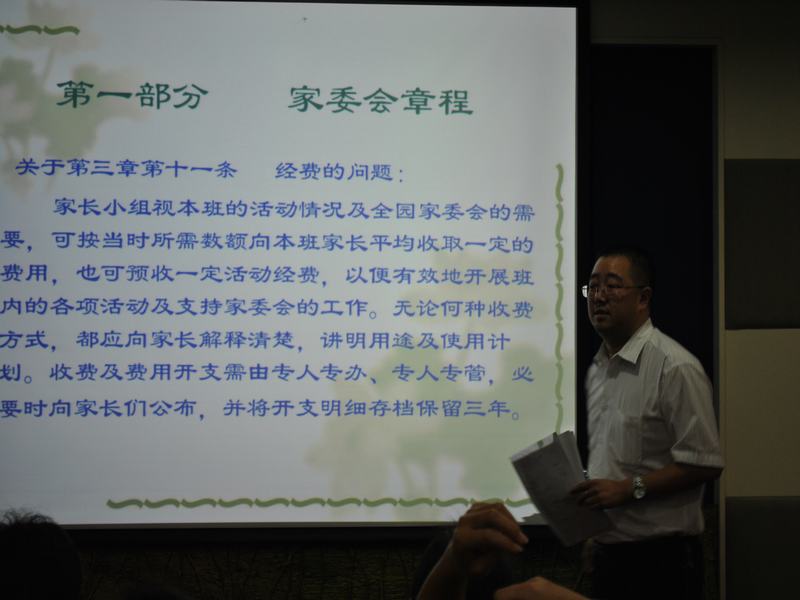 第一部分 家委会章程
关于第三章第十一条 经费的问题：
家长小组视本班的活动情况及全园家委会的需
要，可按当时所需数额向本班家长平均收取一定的
费用，也可预收一定活动经费，以便有效地开展班
内的各项活动及支持家委会的工作。无论何种收费
方式，都应向家长解释清楚，讲明用途及使用计
划。收费及费用开支需由专人专办、专人专管，必
要时向家长们公布，并将开支明细存档保留三年。